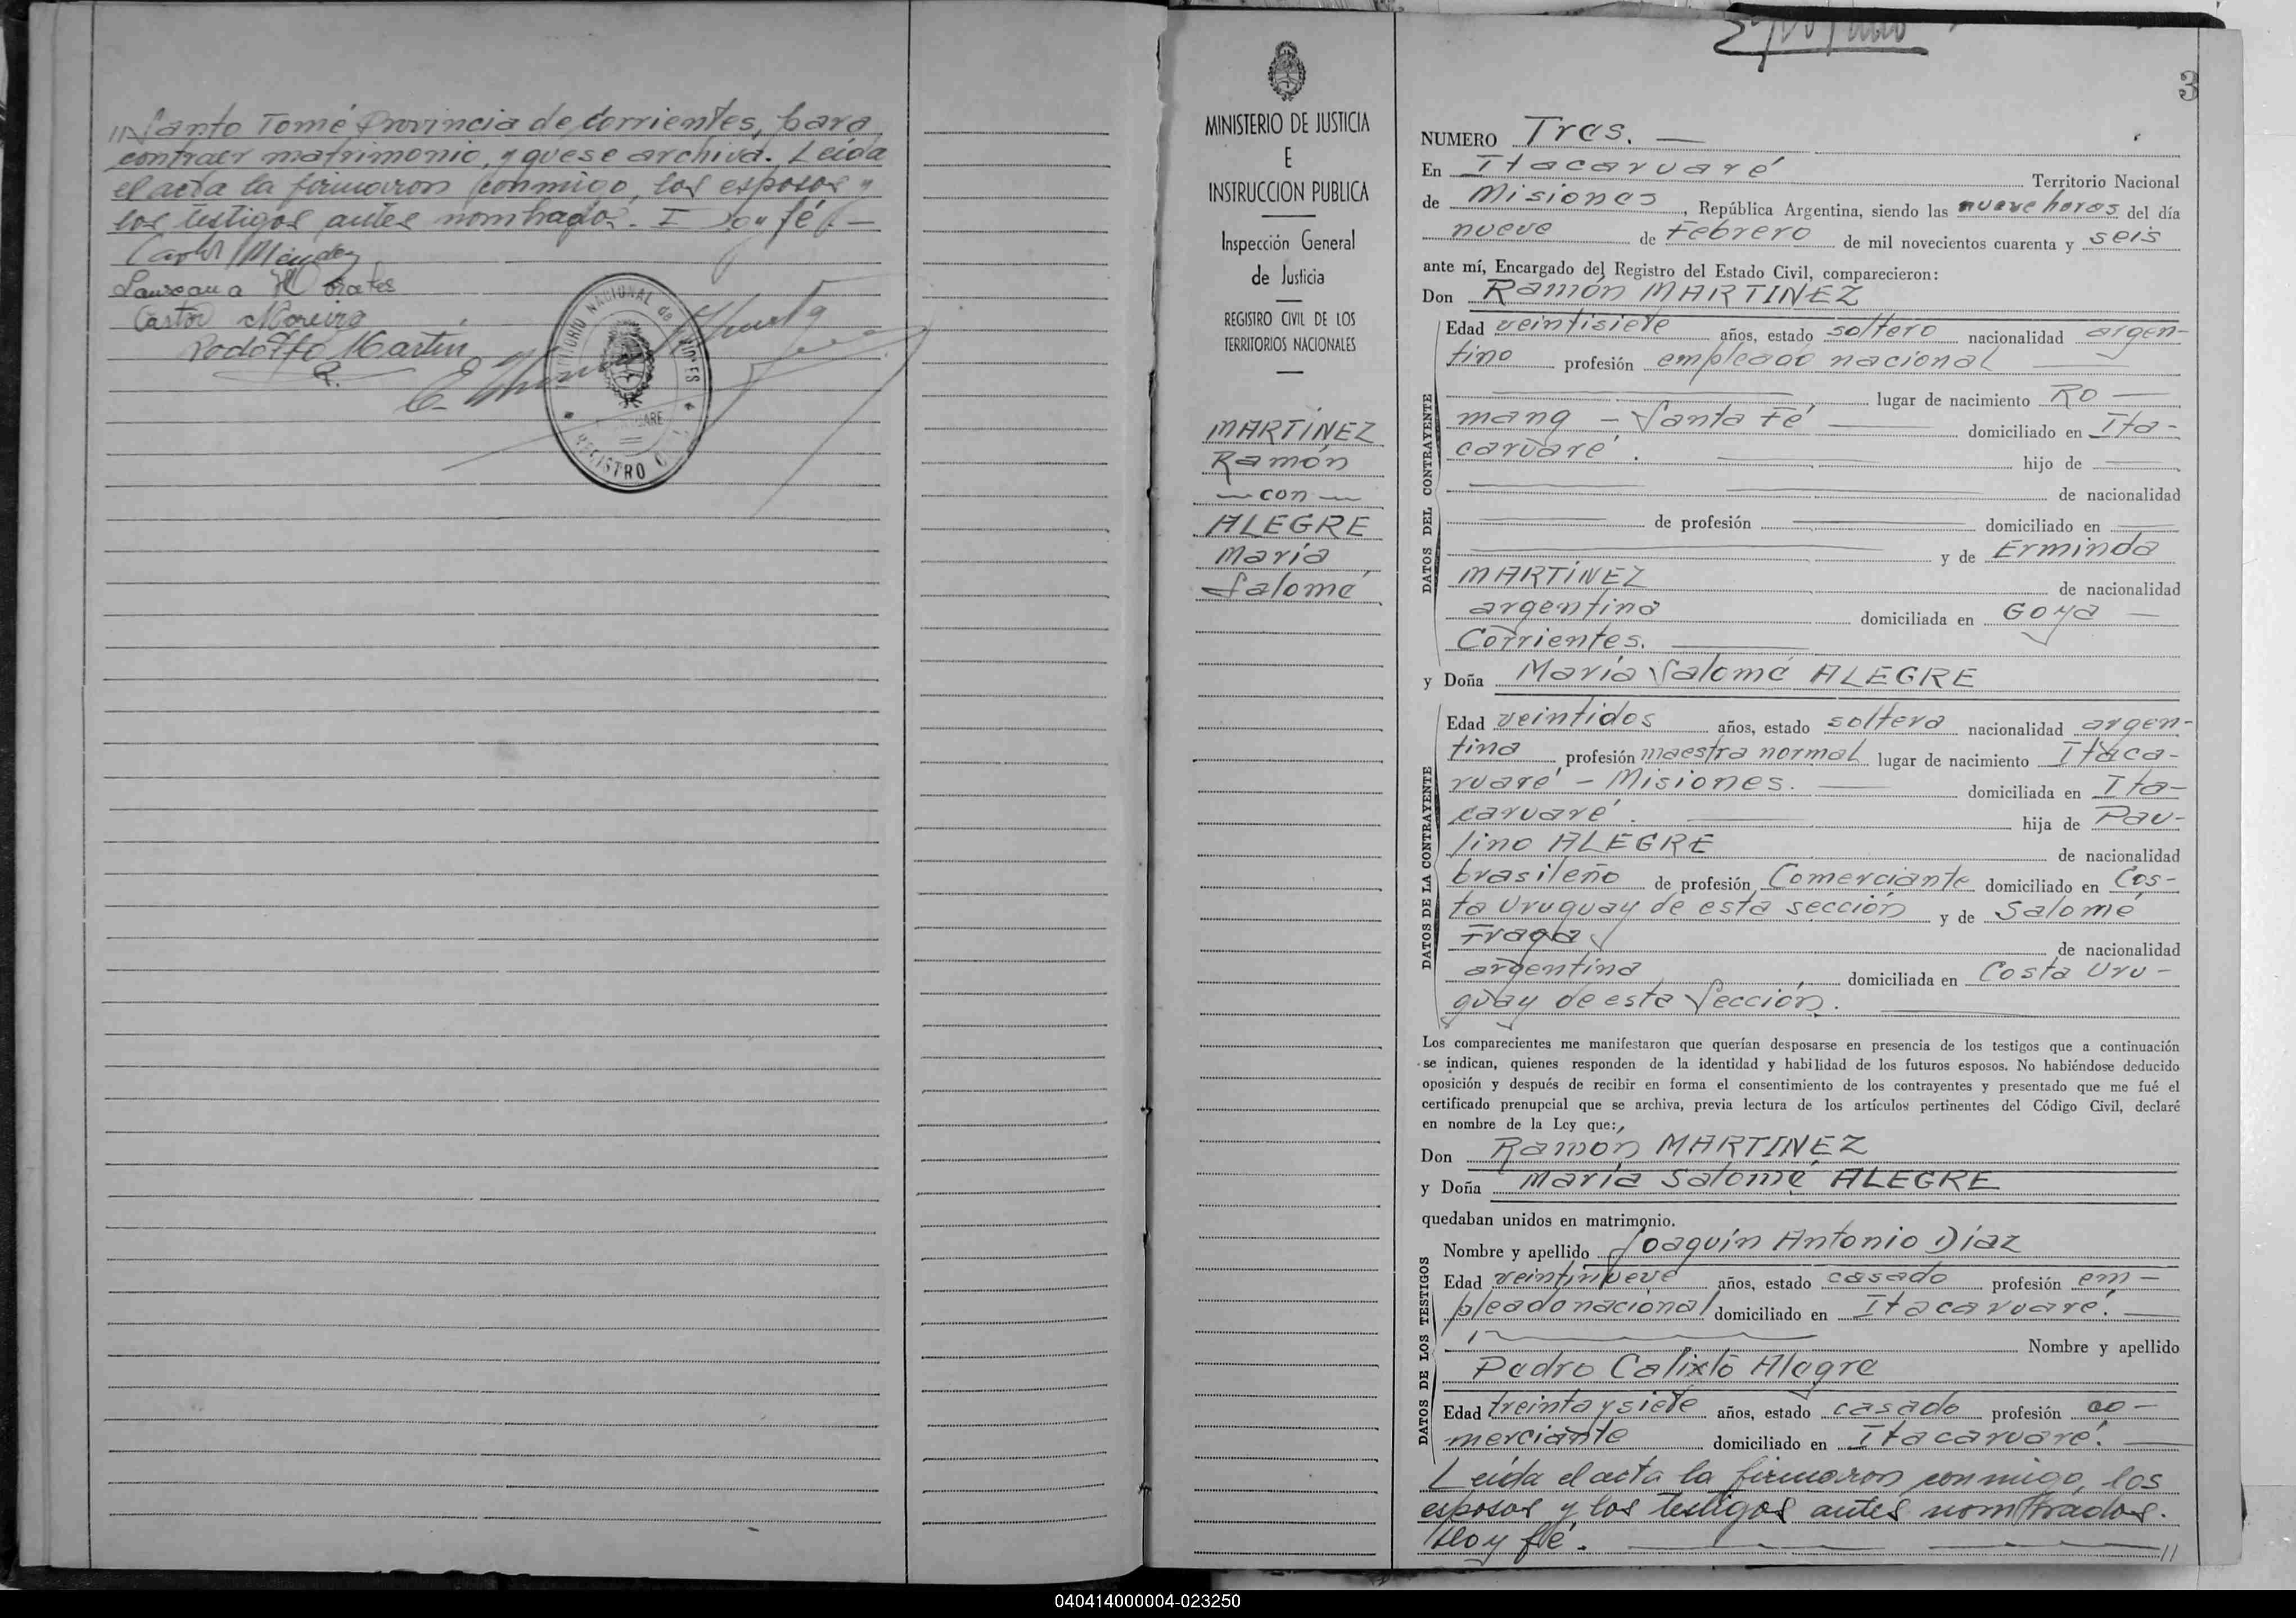 //Santo Tomé Provincia de Corrientes, para
contraer matrimonio, y que se archiva. Leída
el acta la firmaron conmigo, los esposos y
los testigos antes nombrados. Doy fé.
Carlos Méndez
Laureana Morales
Castor Moreira
Rodolfo Martin
TERRITORIO NACIONAL de MISIONES
REGISTRO
3
MINISTERIO DE JUSTICIA
E
INSTRUCCION PUBLICA
Inspección General
de Justicia
REGISTRO CIVIL DE LOS
TERRITORIOS NACIONALES
MARTÍNEZ
Ramón
— con —
ALEGRE
María
Salomé
NUMERO Tres. —
En Itacaruaré Territorio Nacional
de Misiones, República Argentina, siendo las nueve horas del día
nueve de Febrero de mil novecientos cuarenta y seis
ante mí, Encargado del Registro del Estado Civil, comparecieron:
Don Ramón MARTINEZ
DATOS DEL CONTRAYENTE
Edad veintisiete años, estado soltero nacionalidad argen-
tino profesión empleado nacional —
lugar de nacimiento Ro —
mang — Santa Fé — domiciliado en Ita-
caruaré. — hijo de —
— de nacionalidad
— de profesión — domiciliado en —
— y de Erminda
MARTÍNEZ de nacionalidad
argentina domiciliada en Goya —
Corrientes. —
y Doña María Salomé ALEGRE
DATOS DE LA CONTRAYENTE
Edad veintidos años, estado soltera nacionalidad argen-
tina profesión maestra normal lugar de nacimiento Itaca-
ruaré — Misiones. — domiciliada en Ita-
caruaré. — hija de Pau-
lino ALEGRE de nacionalidad
brasileño de profesión Comerciante domiciliado en Cos-
ta Uruguay de esta sección y de Salomé
Fraga de nacionalidad
argentina domiciliada en Costa Uru-
guay de esta Sección. —
Los comparecientes me manifestaron que querían desposarse en presencia de los testigos que a continuación
se indican, quienes responden de la identidad y habilidad de los futuros esposos. No habiéndose deducido
oposición y después de recibir en forma el consentimiento de los contrayentes y presentado que me fué el
certificado prenupcial que se archiva, previa lectura de los artículos pertinentes del Código Civil, declaré
en nombre de la Ley que:
Don Ramón MARTINEZ
y Doña María Salomé ALEGRE
quedaban unidos en matrimonio.
DATOS DE LOS TESTIGOS
Nombre y apellido Joaquín Antonio Díaz
Edad veintinueve años, estado casado profesión em —
pleado nacional domiciliado en Itacaruaré. —
Nombre y apellido
Pedro Calixto Alegre
Edad treinta y siete años, estado casado profesión co —
merciante domiciliado en Itacaruaré. —
Leída el acta la firmaron conmigo, los
esposos y los testigos antes nombrados.
Doy fé. — — //
040414000004-023250